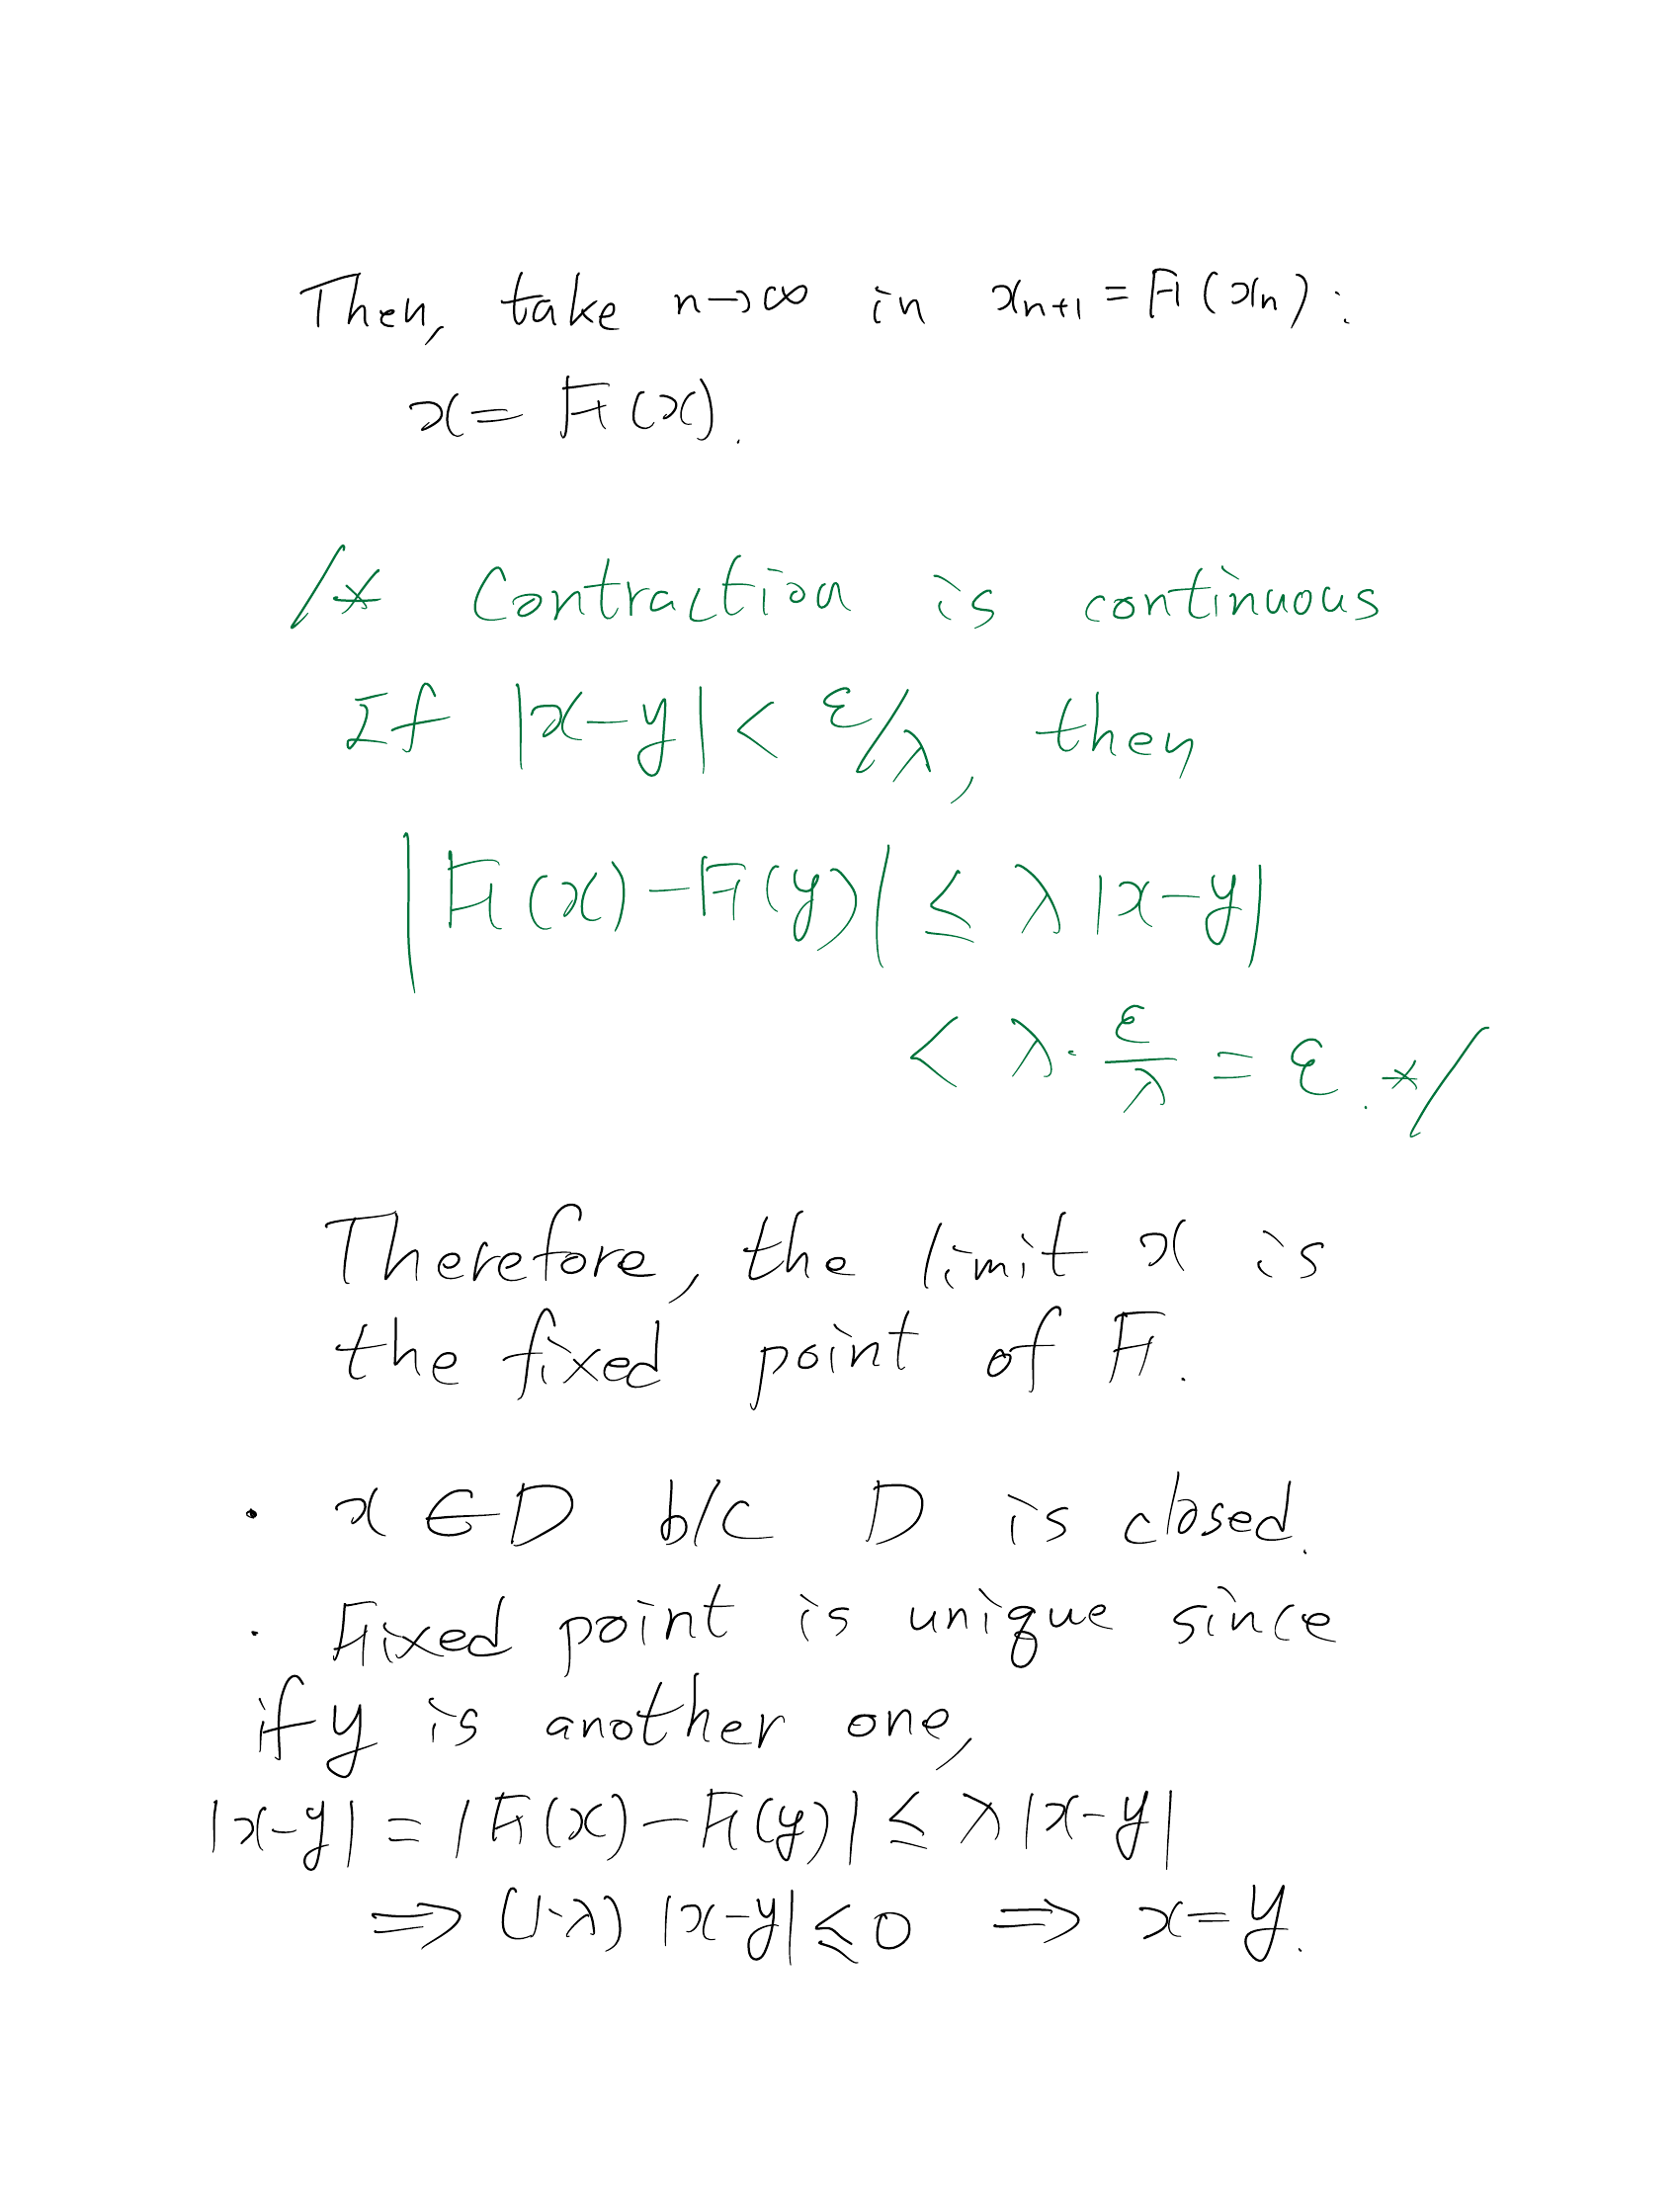 Then, take n→∞ in xₙ₊₁ = F(xₙ):
x = F(x).
/* Contraction is continuous
If |x-y| < ε/λ, then
|F(x) - F(y)| ≤ λ|x-y|
< λ · ε/λ = ε. */
Therefore, the limit x is
the fixed point of F.
· x ∈ D b/c D is closed.
· Fixed point is unique since
if y is another one,
|x-y| = |F(x) - F(y)| ≤ λ|x-y|
⇒ (1-λ) |x-y| ≤ 0 ⇒ x = y.